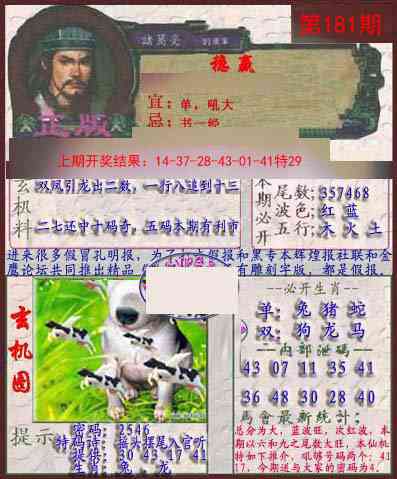 第181期
諸葛亮
稳赢
宜:单,吼大
正版
忌:书一综
上期开奖结果:14-37-28-43-01-41特29
玄机料
双凤引龙出二数,一行入追到十三
二七还中十码奇,五码本期有利市
本期必开
尾数:357468
波色:红 蓝
五行:木 火 土
进来很多假冒孔明报,为了打击假报和黑专本辉煌报社联和金
鹰论坛共同推出精品
有雕刻字版,都是假报,
玄机图
--必开生肖--
单:兔 猪 蛇
双:狗 龙 马
--内部泄码--
43 07 11 35 41
36 48 30 28 40
馬會最新统计:
总分为大,蓝波旺,次红波,本
期以六和九之尾数大旺,本仙机
特如下推介,吼够号码两个:41
17,今期送与大家的密码为4.
提示
密码:2546
特码诗:摇头摆尾入官听
提供:30 43 17 41
生肖:兔、龙